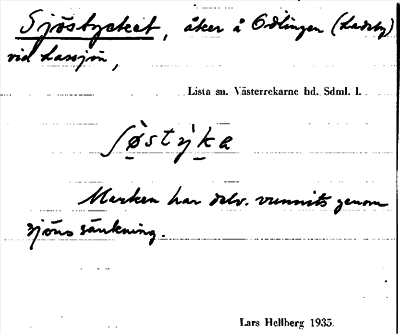 Sjöstycket, åker å Odlingen (Ladeby)
vid Lassjön,
Lista su. Västerrekarne hd. Sdml. l.
ʃø̀stỳka
Marken har delv. vunnits genom
sjöns sänkning.
Lars Hellberg 1935.